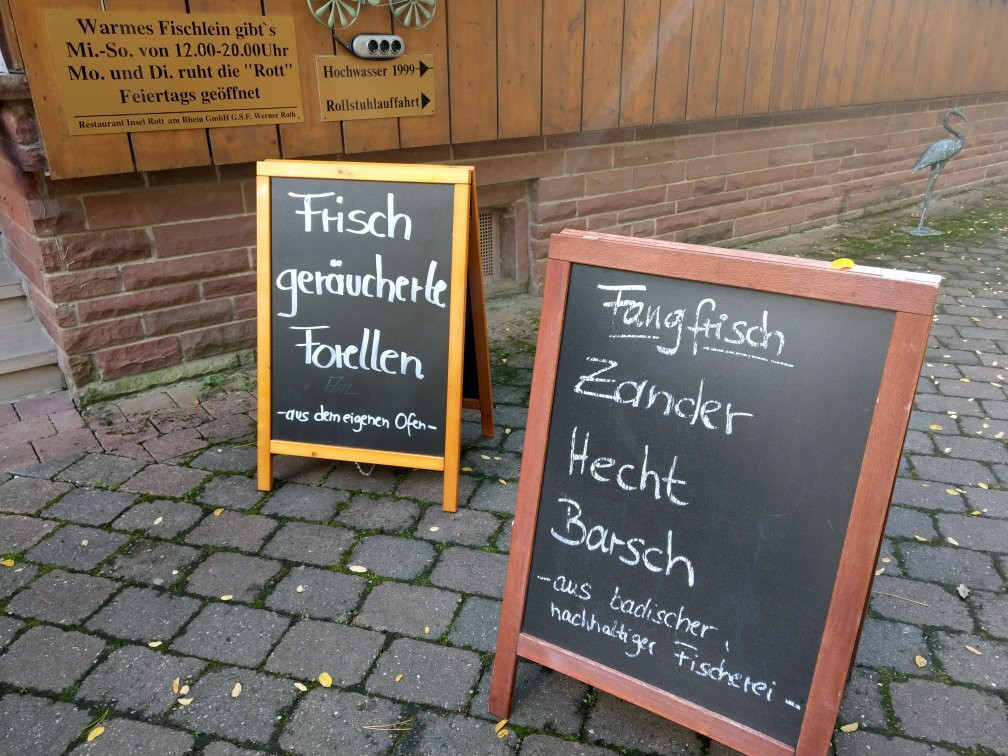 Warmes Fischlein gibt`s
Mi.-So. von 12.00-20.00Uhr
Mo. und Di. ruht die "Rott"
Feiertags geöffnet
Restaurant Insel Rott am Rhein GmbH G.S.F. Werner Roth
Hochwasser 1999
Rollstuhlauffahrt
Frisch
geräucherte
Forellen
-aus dem eigenen Ofen-
Fangfrisch
Zander
Hecht
Barsch
-aus badischer,
nachhaltiger Fischerei-